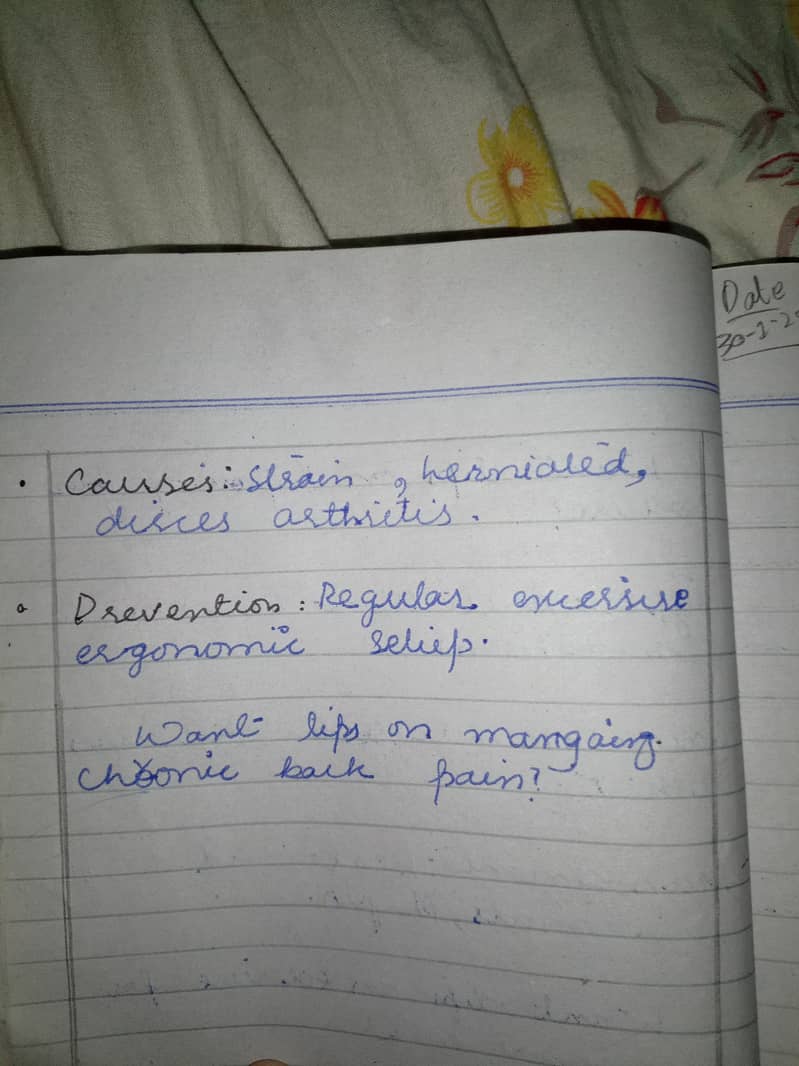 Date
30-1-2
• Causes: Strain, herniated,
disces arthritis.
• Prevention: Regular excersise
ergonomic setup.
Want tips on mangaing.
chronic back pain?